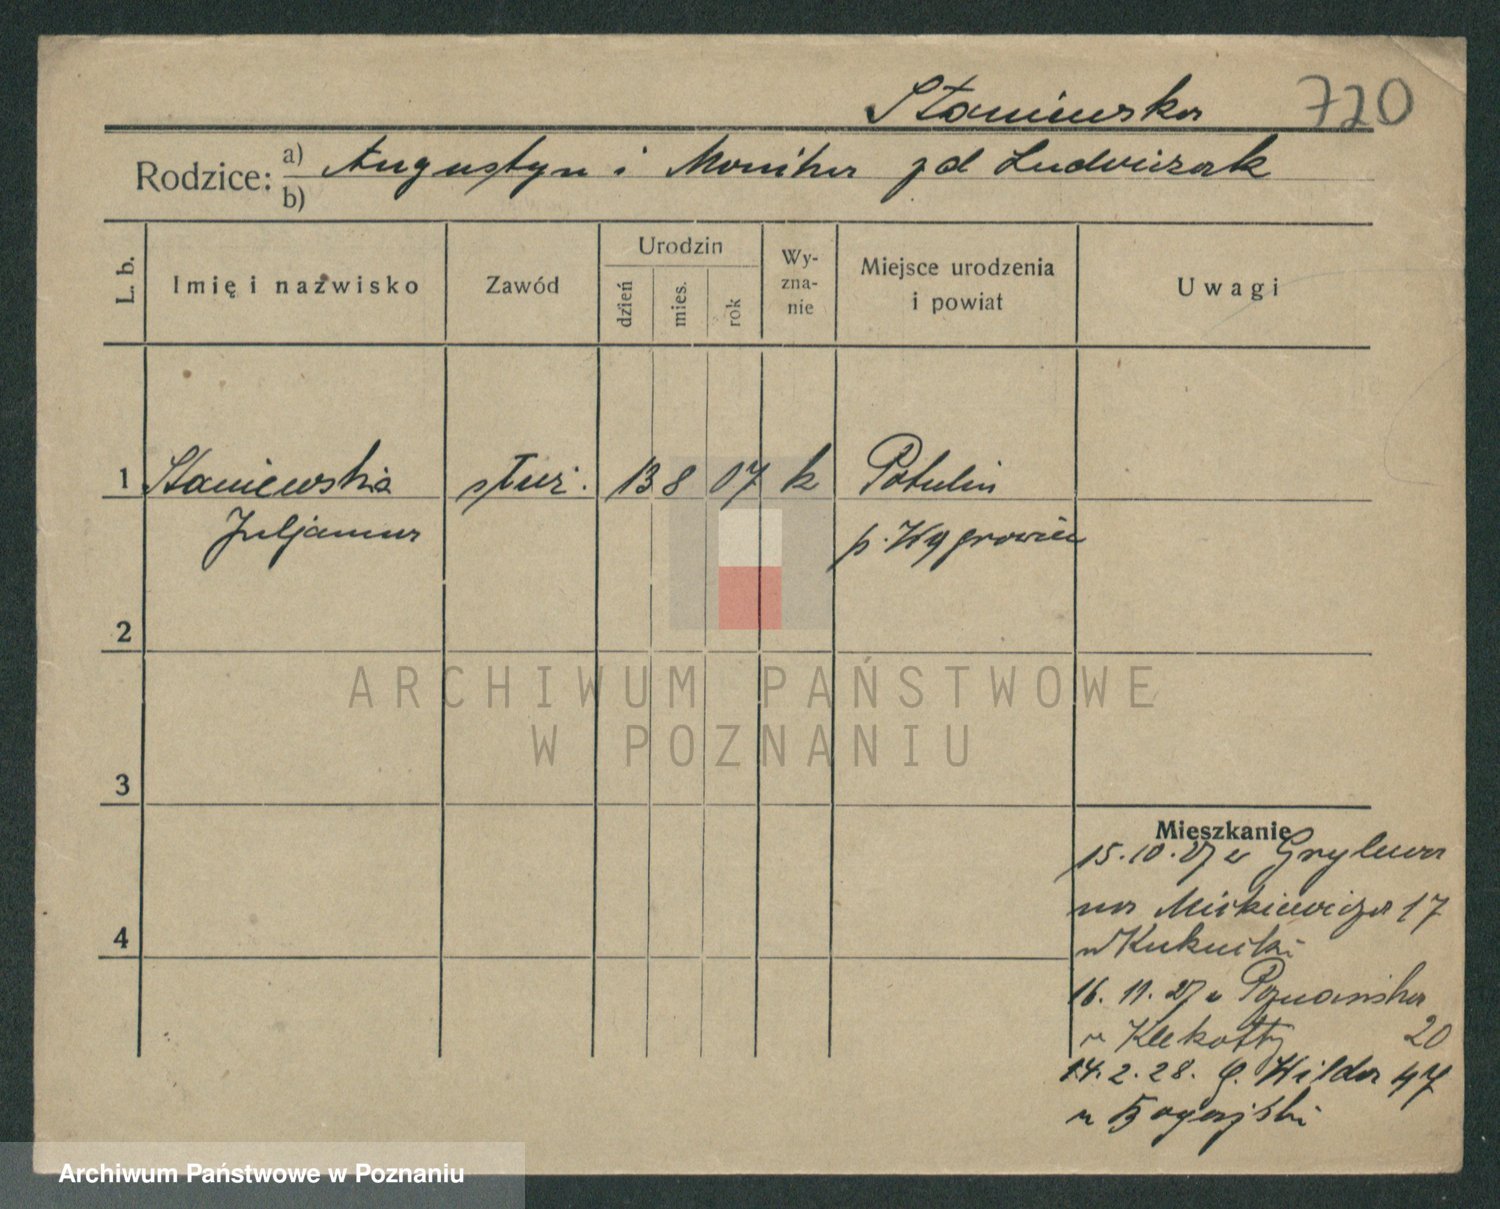 Staniewska 720
Rodzice: a) Augustyn i Monika zd Ludwiczak
b)
L. b. Imię i nazwisko Zawód Urodzin dzień mies. rok Wyznanie Miejsce urodzenia i powiat Uwagi
1 Staniewska służ. 13 8 07 k Potulin
Juljanna p. Wągrowiec
2
ARCHIWUM PAŃSTWOWE
W POZNANIU
3
Mieszkanie
15.10.27 z
na Mickiewicza 17
4
16.11.27 Poznańska
u Klekotty 20
14.2.28. G. Wilda 47
u
Archiwum Państwowe w Poznaniu